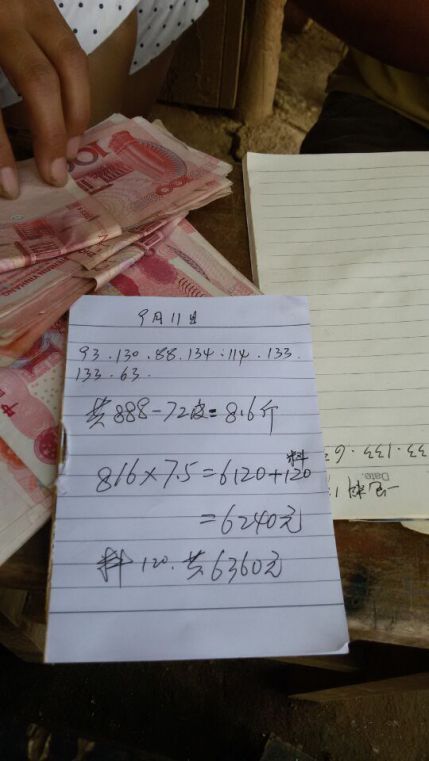 100
9月11日
93.130.88.134.114.133.
133.63.
共888-72皮=816斤
料
816×7.5=6120+120
=6240元
料120.共6360元
Date.